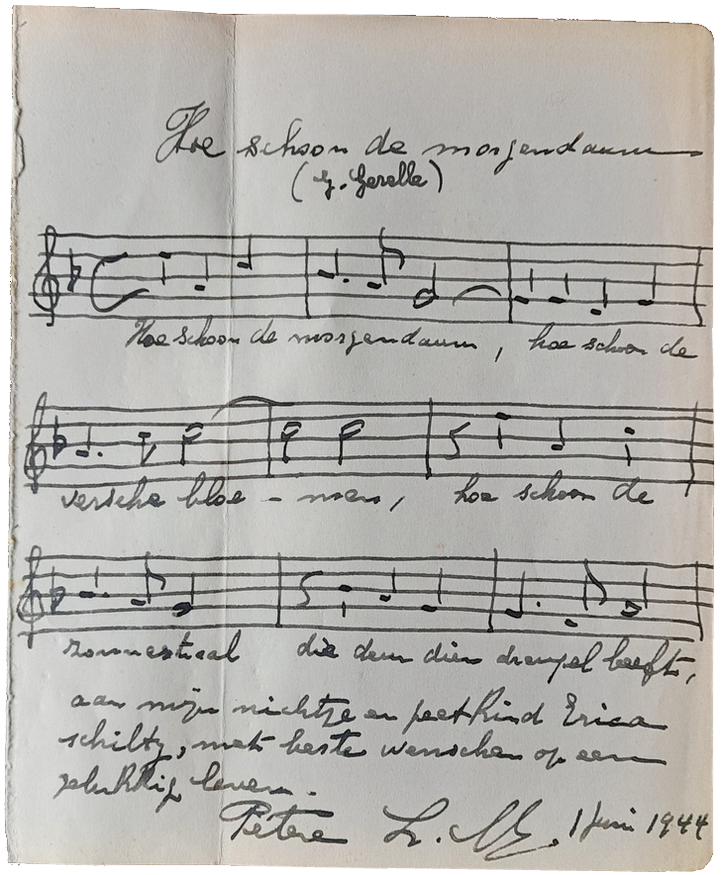 Hoe schoon de morgendauw
(G. Gezelle)
Hoe schoon de morgendauw, hoe schoon de
versche bloe - men, hoe schoon de
zonnestraal die dauw dien drempel leeft,
aan mijn nichtje en peetkind Erica
schiltz, met beste wenschen op een
gelukkig leven.
Petere L. 1 Juni 1944